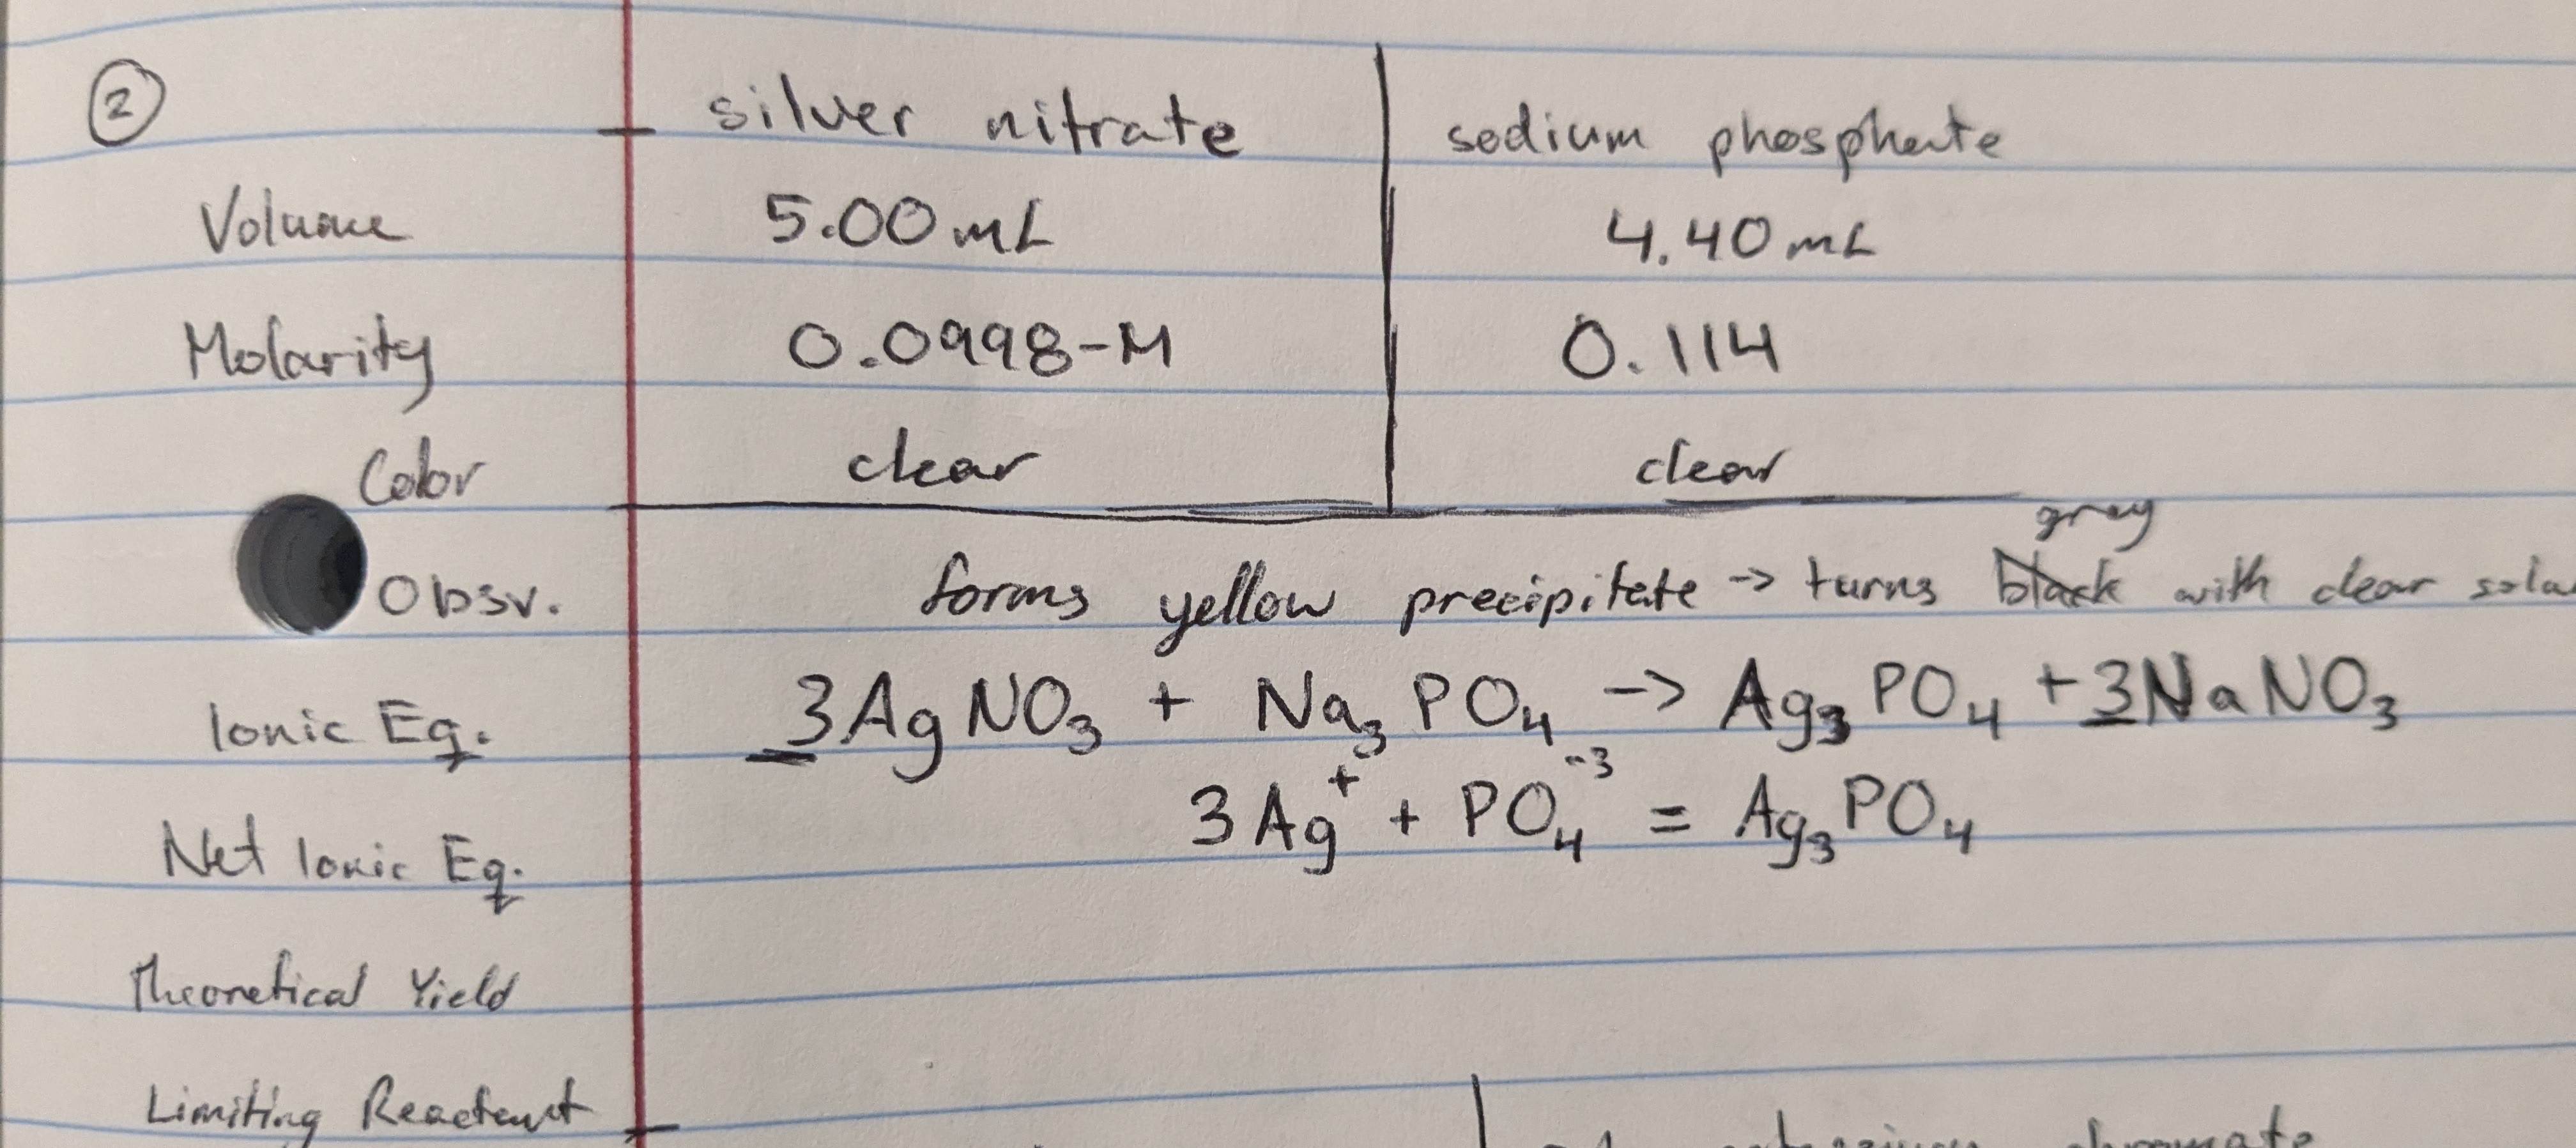 ② silver nitrate sodium phosphate
Volume 5.00 mL 4.40 mL
Molarity 0.0998-M 0.114
Color clear clear
gray
Obsv. forms yellow precipitate → turns black with clear
Ionic Eq. 3AgNO₃ + Na₃PO₄ → Ag₃PO₄ + 3NaNO₃
Net Ionic Eq. 3Ag⁺ + PO₄⁻³ = Ag₃PO₄
Theoretical Yield
Limiting Reactant
chromate